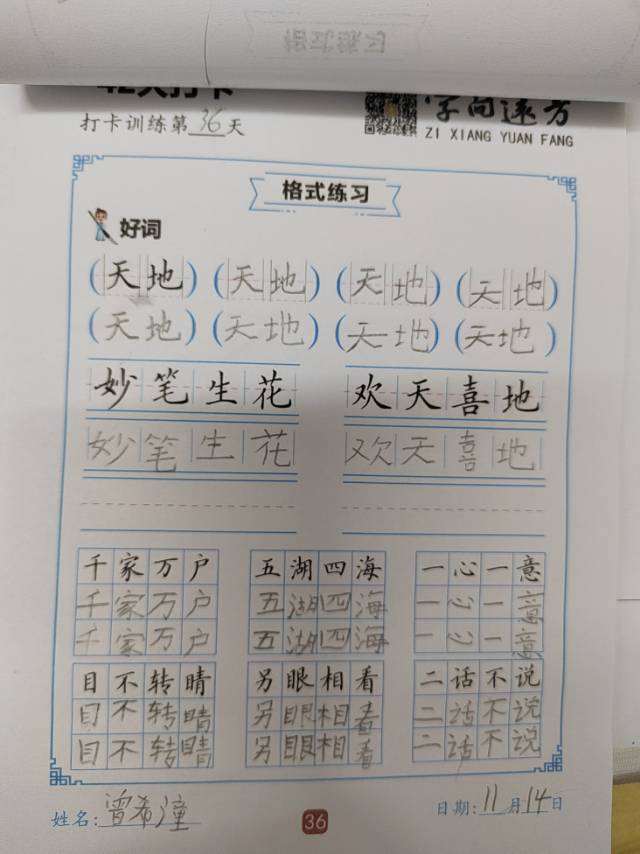 42天打卡
字间远方
打卡训练第36天
ZI XIANG YUAN FANG
格式练习
好词
(天地) (天地) (天地) (天地)
(天地) (天地) (天地) (天地)
妙笔生花 欢天喜地
妙笔生花 欢天喜地
千家万户 五湖四海 一心一意
千家万户 五湖四海 一心一意
千家万户 五湖四海 一心一意
目不转晴 另眼相看 二话不说
目不转晴 另眼相看 二话不说
目不转晴 另眼相看 二话不说
姓名:曾希潼 36 日期:11月14日